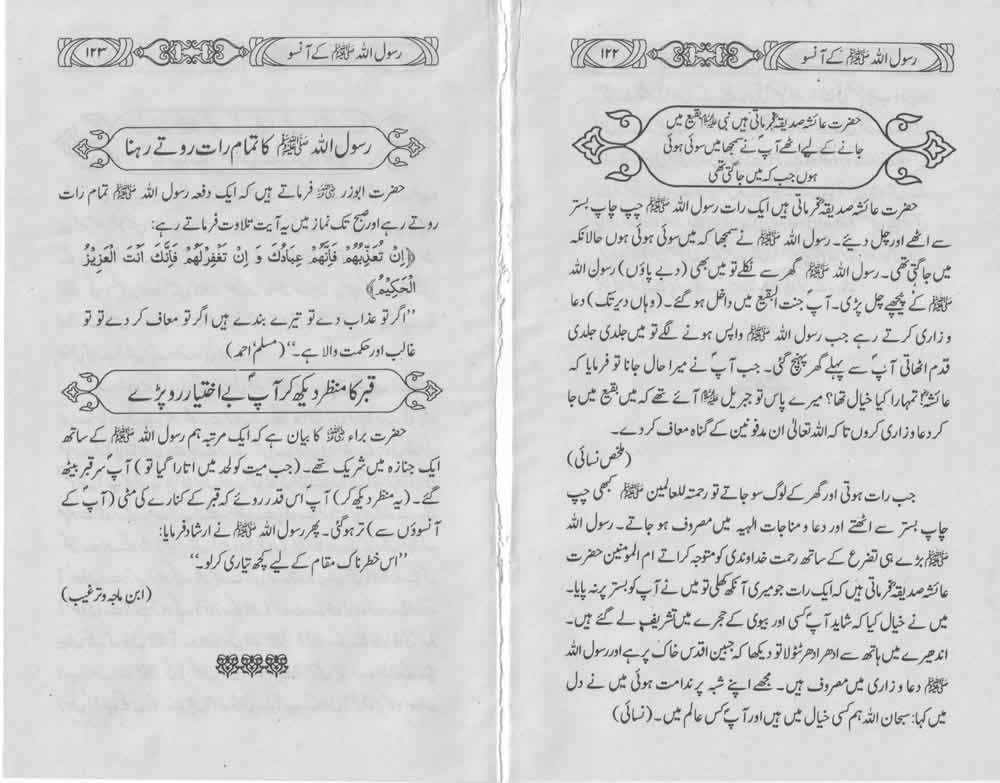 رسول اللہ ﷺ کے آنسو ۱۲۲
حضرت عائشہ صدیقہؓ فرماتی ہیں نبی علیہ السلام بقیع میں
جانے کے لیے اٹھے آپؐ نے سمجھا میں سوئی ہوئی
ہوں جب کہ میں جاگتی تھی
حضرت عائشہ صدیقہؓ فرماتی ہیں ایک رات رسول اللہ ﷺ چپ چاپ بستر
سے اٹھے اور چل دیئے۔ رسول اللہ ﷺ نے سمجھا کہ میں سوئی ہوئی ہوں حالانکہ
میں جاگتی تھی۔ رسول اللہ ﷺ گھر سے نکلے تو میں بھی (دبے پاؤں) رسول اللہ
ﷺ کے پیچھے چل پڑی۔ آپؐ جنت البقیع میں داخل ہو گئے۔ (وہاں دیر تک) دعا
و زاری کرتے رہے جب رسول اللہ ﷺ واپس ہونے لگے تو میں جلدی جلدی
قدم اٹھاتی آپؐ سے پہلے گھر پہنچ گئی۔ جب آپؐ نے میرا حال جانا تو فرمایا کہ
عائشہؓ! تمہارا کیا خیال تھا؟ میرے پاس تو جبریل علیہ السلام آئے تھے کہ میں بقیع میں جا
کر دعا و زاری کروں تا کہ اللہ تعالیٰ ان مدفونین کے گناہ معاف کر دے۔
(ملخص نسائی)
جب رات ہوتی اور گھر کے لوگ سو جاتے تو رحمتہ للعالمین ﷺ کبھی چپ
چاپ بستر سے اٹھتے اور دعا و مناجات الٰہیہ میں مصروف ہو جاتے۔ رسول اللہ
ﷺ بڑے ہی تضرع کے ساتھ رحمت خداوندی کو متوجہ کراتے ام المومنین حضرت
عائشہ صدیقہؓ فرماتی ہیں کہ ایک رات جو میری آنکھ کھلی تو میں نے آپ کو بستر پر نہ پایا۔
میں نے خیال کیا کہ شاید آپؐ کسی اور بیوی کے حجرے میں تشریف لے گئے ہیں۔
اندھیرے میں ہاتھ سے ادھر ادھر ٹٹولا تو دیکھا کہ جبین اقدس خاک پر ہے اور رسول اللہ
ﷺ دعا و زاری میں مصروف ہیں۔ مجھے اپنے شبہ پر ندامت ہوئی میں نے دل
میں کہا: سبحان اللہ ہم کسی خیال میں ہیں اور آپؐ کس عالم میں۔ (نسائی)
رسول اللہ ﷺ کے آنسو ۱۲۳
رسول اللہ ﷺ کا تمام رات روتے رہنا
حضرت ابوزر رضی اللہ عنہ فرماتے ہیں کہ ایک دفعہ رسول اللہ ﷺ تمام رات
روتے رہے اور صبح تک نماز میں یہ آیت تلاوت فرماتے رہے:
﴿اِنْ تُعَذِّبْهُمْ فَاِنَّهُمْ عِبَادُكَ وَ اِنْ تَغْفِرْلَهُمْ فَاِنَّكَ اَنْتَ الْعَزِيْزُ
الْحَكِيْمُ﴾
’’اگر تو عذاب دے تو تیرے بندے ہیں اگر تو معاف کر دے تو تو
غالب اور حکمت والا ہے۔‘‘ (مسلم‘ احمد)
قبر کا منظر دیکھ کر آپؐ بے اختیار رو پڑے
حضرت براء رضی اللہ عنہ کا بیان ہے کہ ایک مرتبہ ہم رسول اللہ ﷺ کے ساتھ
ایک جنازہ میں شریک تھے۔ (جب میت کو لحد میں اتارا گیا تو) آپؐ سر قبر بیٹھ
گئے۔ (یہ منظر دیکھ کر) آپؐ اس قدر روئے کہ قبر کے کنارے کی مٹی (آپؐ کے
آنسوؤں سے) تر ہو گئی۔ پھر رسول اللہ ﷺ نے ارشاد فرمایا:
’’اس خطرناک مقام کے لیے کچھ تیاری کر لو۔‘‘
(ابن ماجہ و ترغیب)